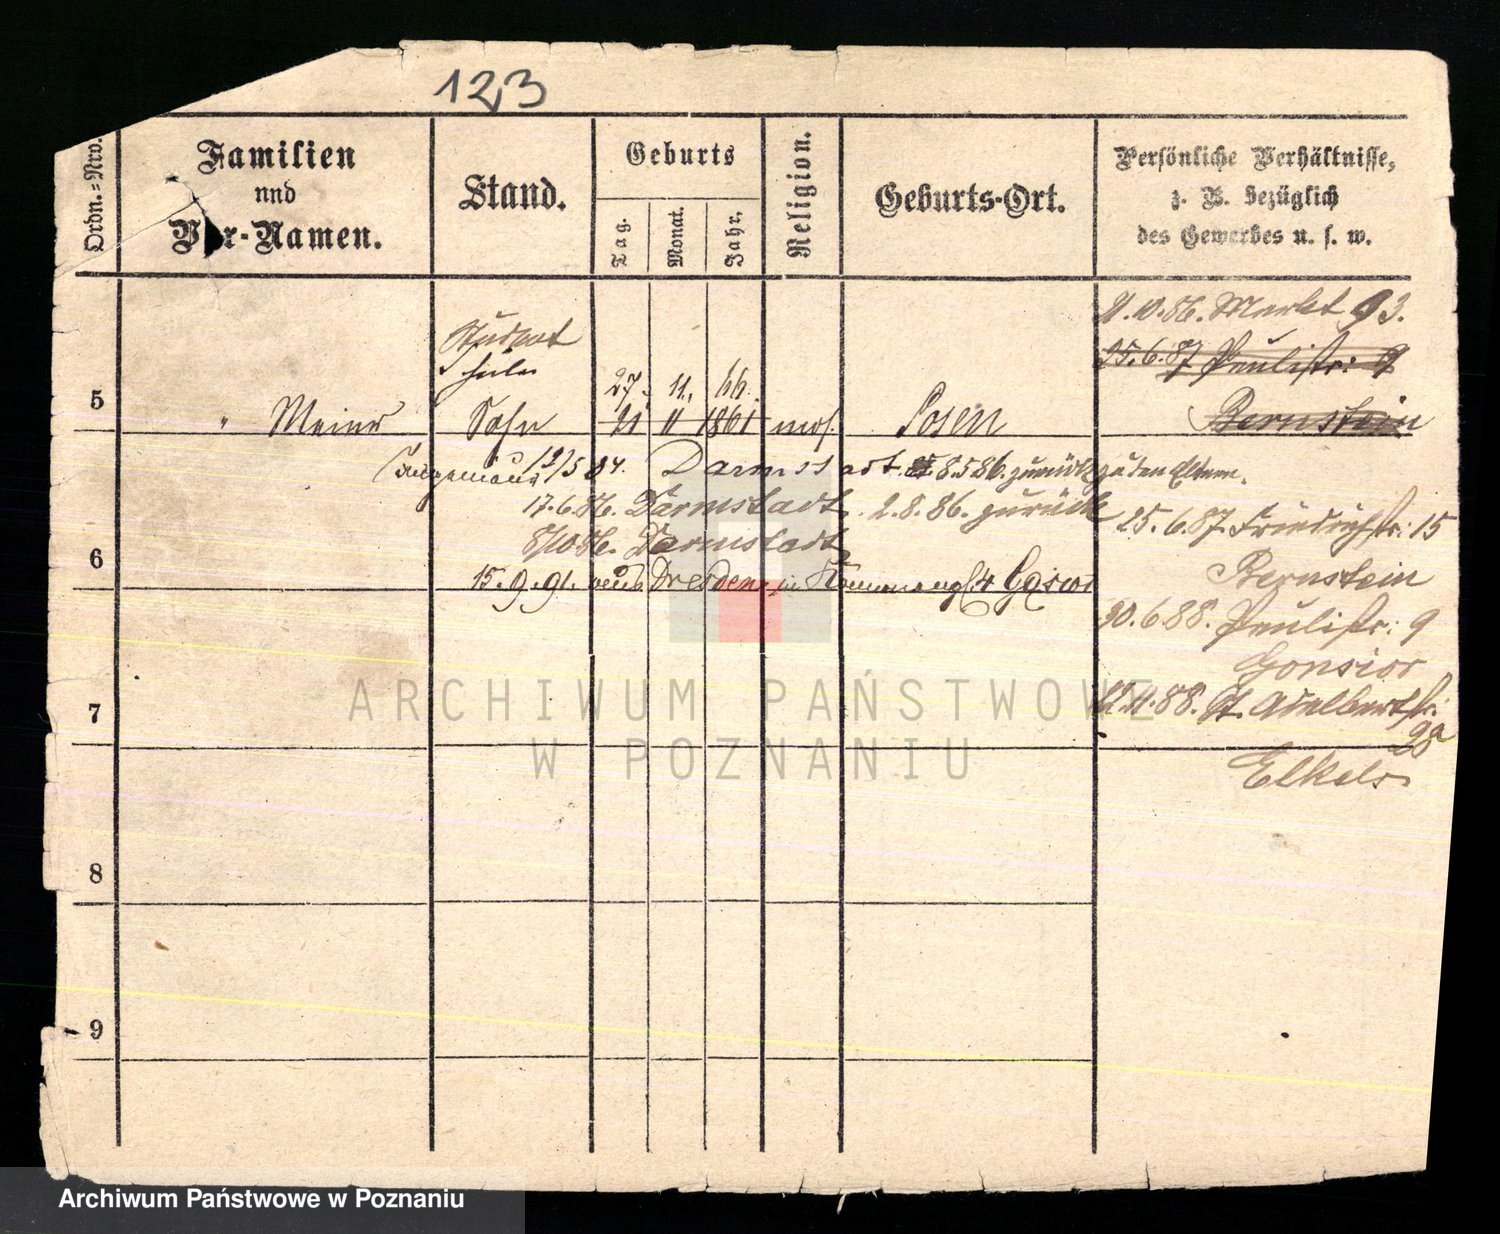 123
Ordn.=Nro.
Familien
und
Vor-Namen.
Stand.
Geburts
Tag.
Monat.
Jahr.
Religion.
Geburts-Ort.
Persönliche Verhältnisse,
z. B. bezüglich
des Gewerbes u. s. w.
5
" Meier
Student
Sohn
27. 11. 66.
11 1861
mos.
Posen
12/5 84. Darmstadt. 8.5 86. zurück zu den Eltern.
17.6.86. Darmstadt. 2.8.86. zurück
8/10 86. Darmstadt
6
15.9.91. aus Dresden in
7
8
9
10.86. Markt 93.
25.6.87 Paulistr: 9
Bernstein
25.6.87. Friedrichstr: 15
Bernstein
30.6.88. Paulistr: 9
Gonsior
11.88. St. Adalbertstr:
28a
Elkeles
ARCHIWUM PAŃSTWOWE
W POZNANIU
Archiwum Państwowe w Poznaniu